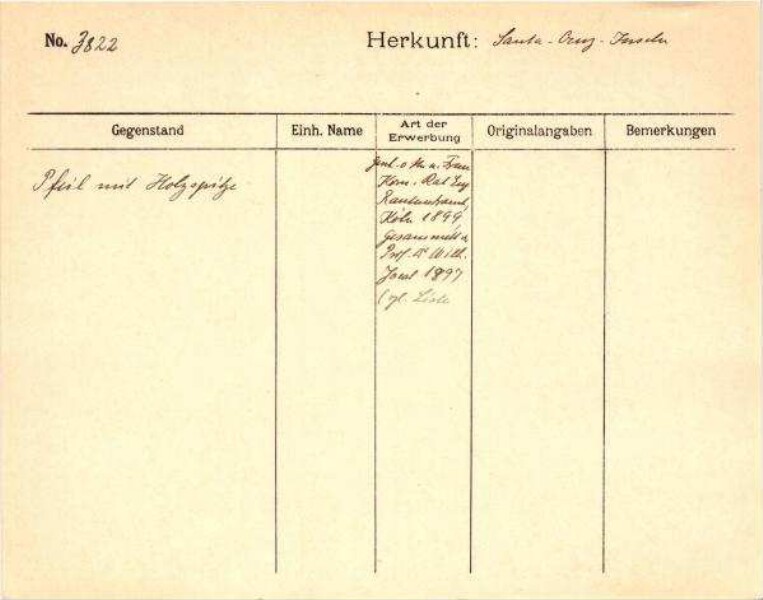 No. 3822
Herkunft: Santa-Cruz-Inseln
Gegenstand
Einh. Name
Art der
Erwerbung
Originalangaben
Bemerkungen
Pfeil mit Holzspitze
Gesch. v. Hr. u. Frau
Kom. Rat Eug
Rautenstrauch,
Köln 1899
Gesammelt v.
Prof. Dr Wilh.
Joest 1897
(vgl. Liste